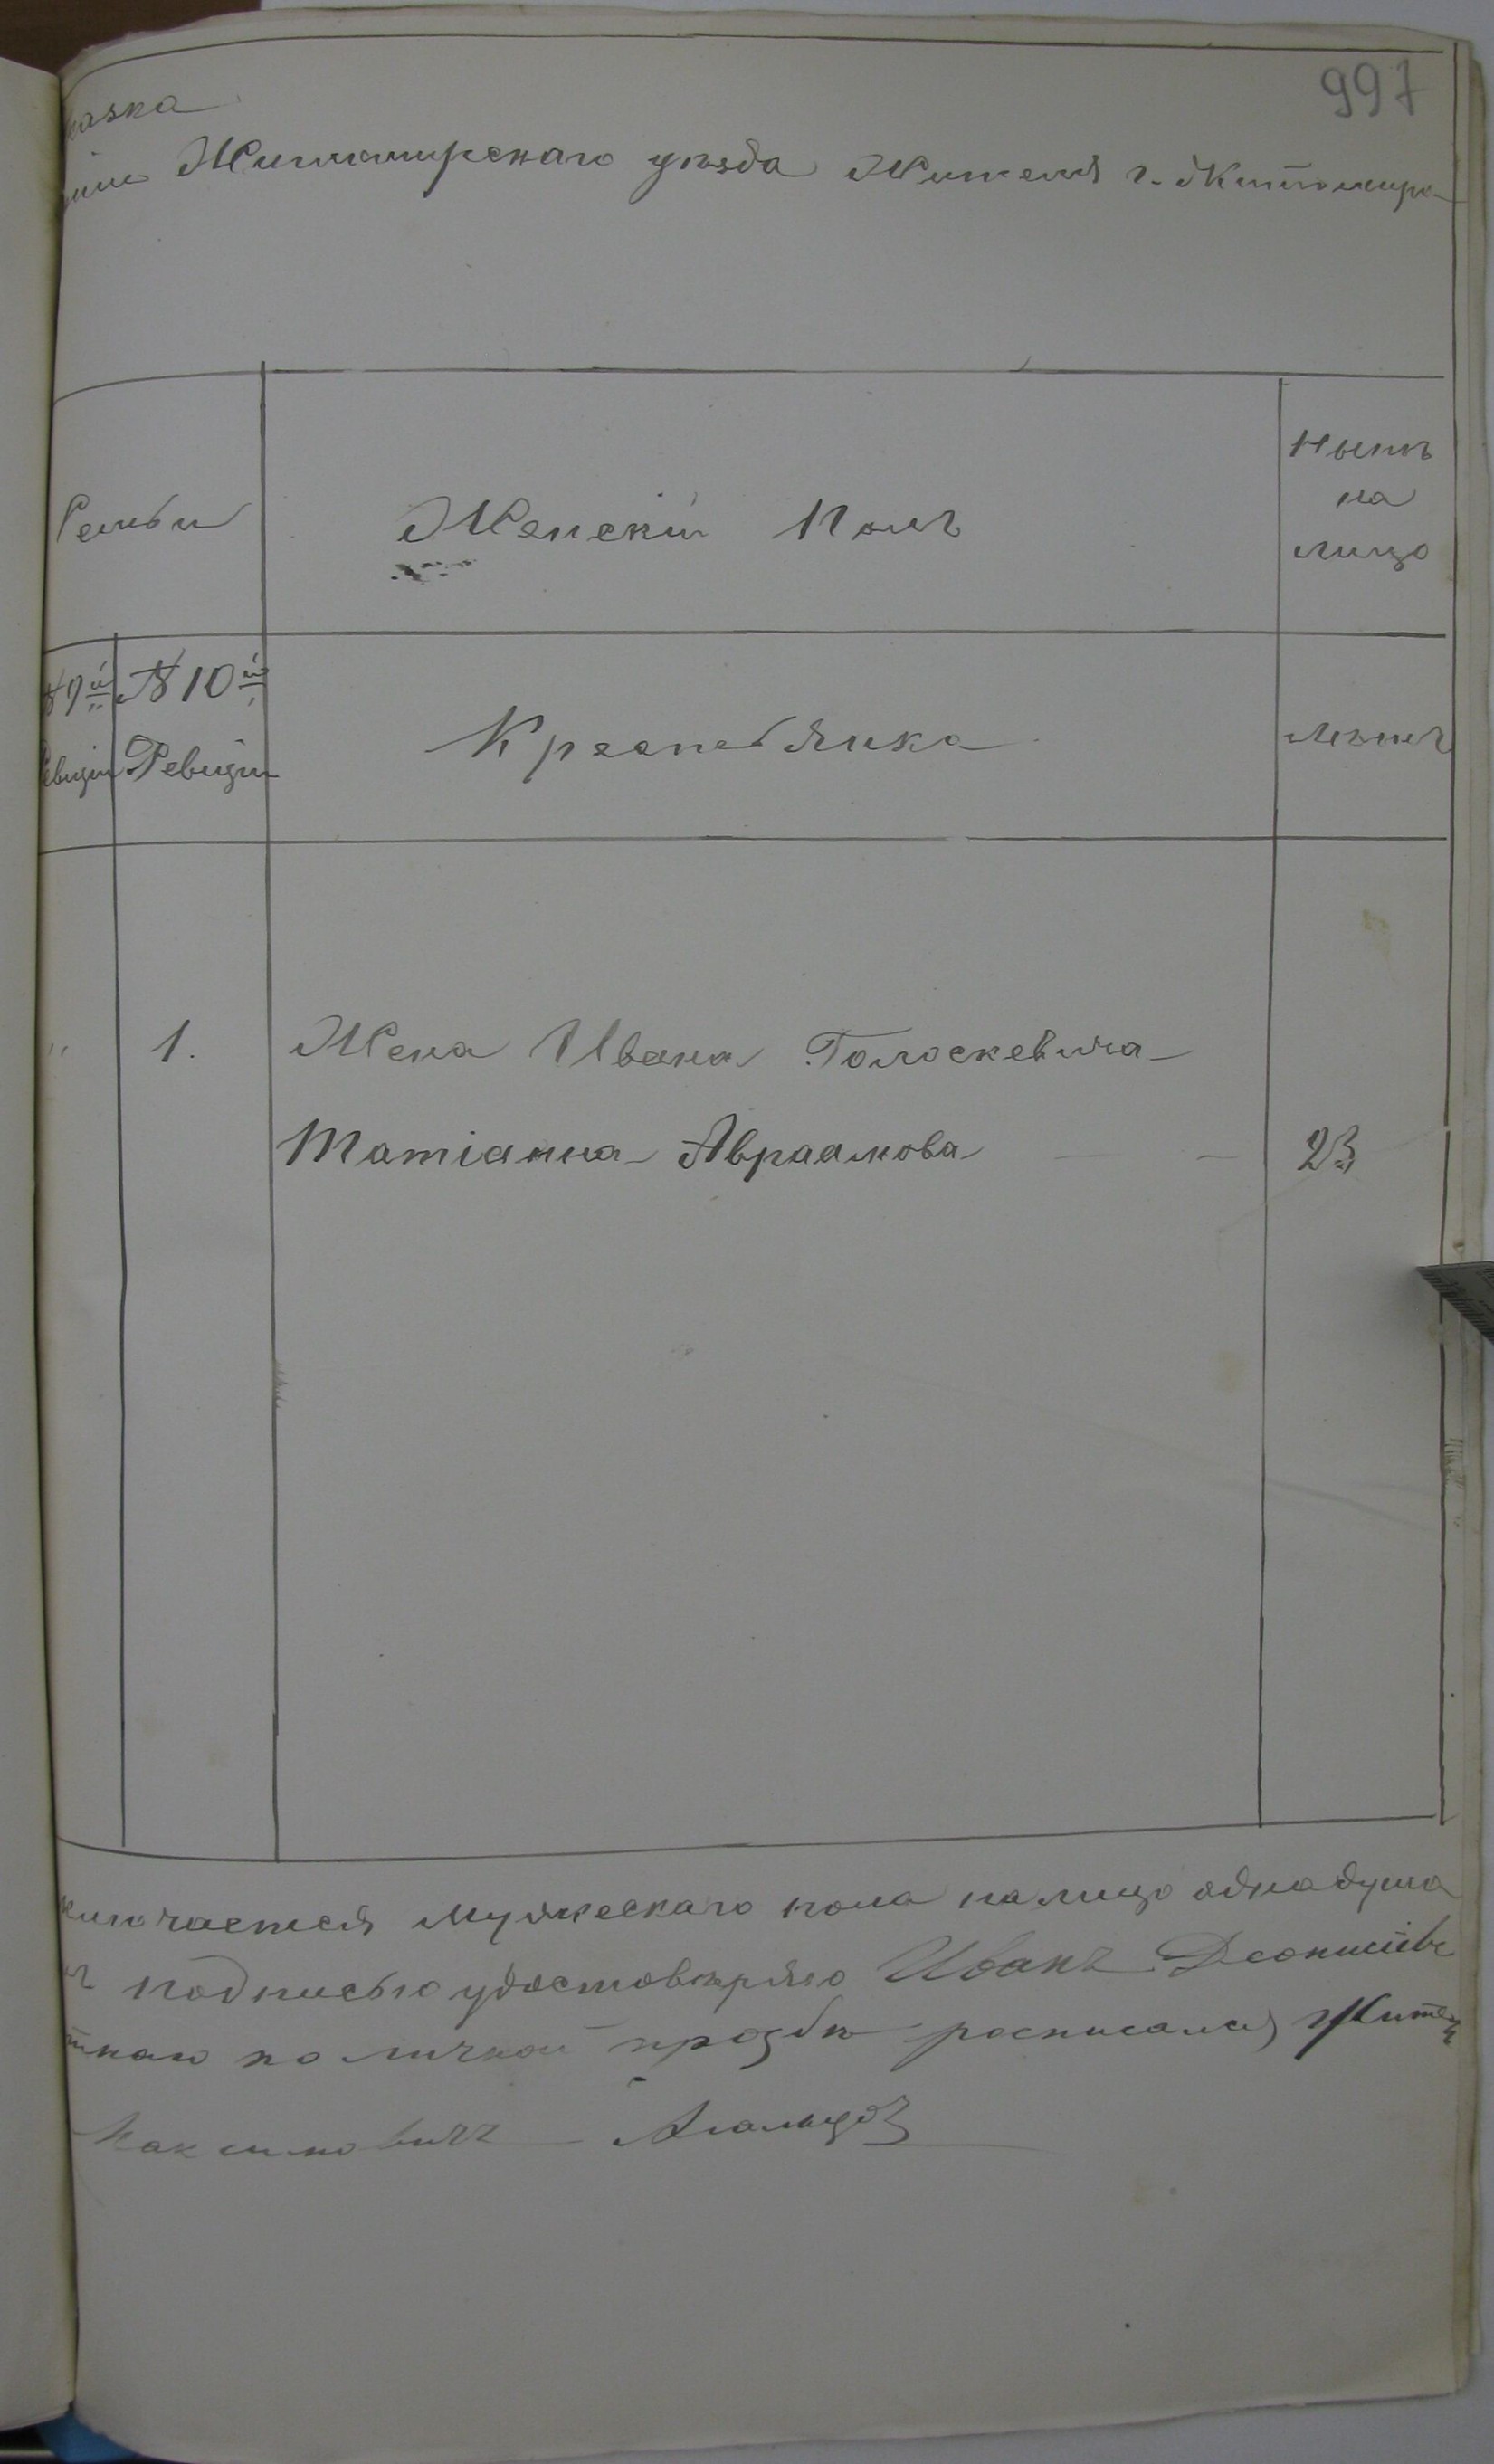 997
казка
Житомирскаго уѣзда Жителя г. Житомира
Семьи
Женскій Полъ
Нынѣ
на
лицо
№ 9й
№ 10й
Ревизіи
Ревизіи
Крестьянка
Лѣтъ
" 1. Жена Ивана Голоскевича
Татіанна Авраамова 23
ключается Мужескаго пола на лицо одна душа
подписью удостовѣряю Иванъ Деонисіевъ
тнаю по личной прозбѣ росписался Жител
Максимовичъ